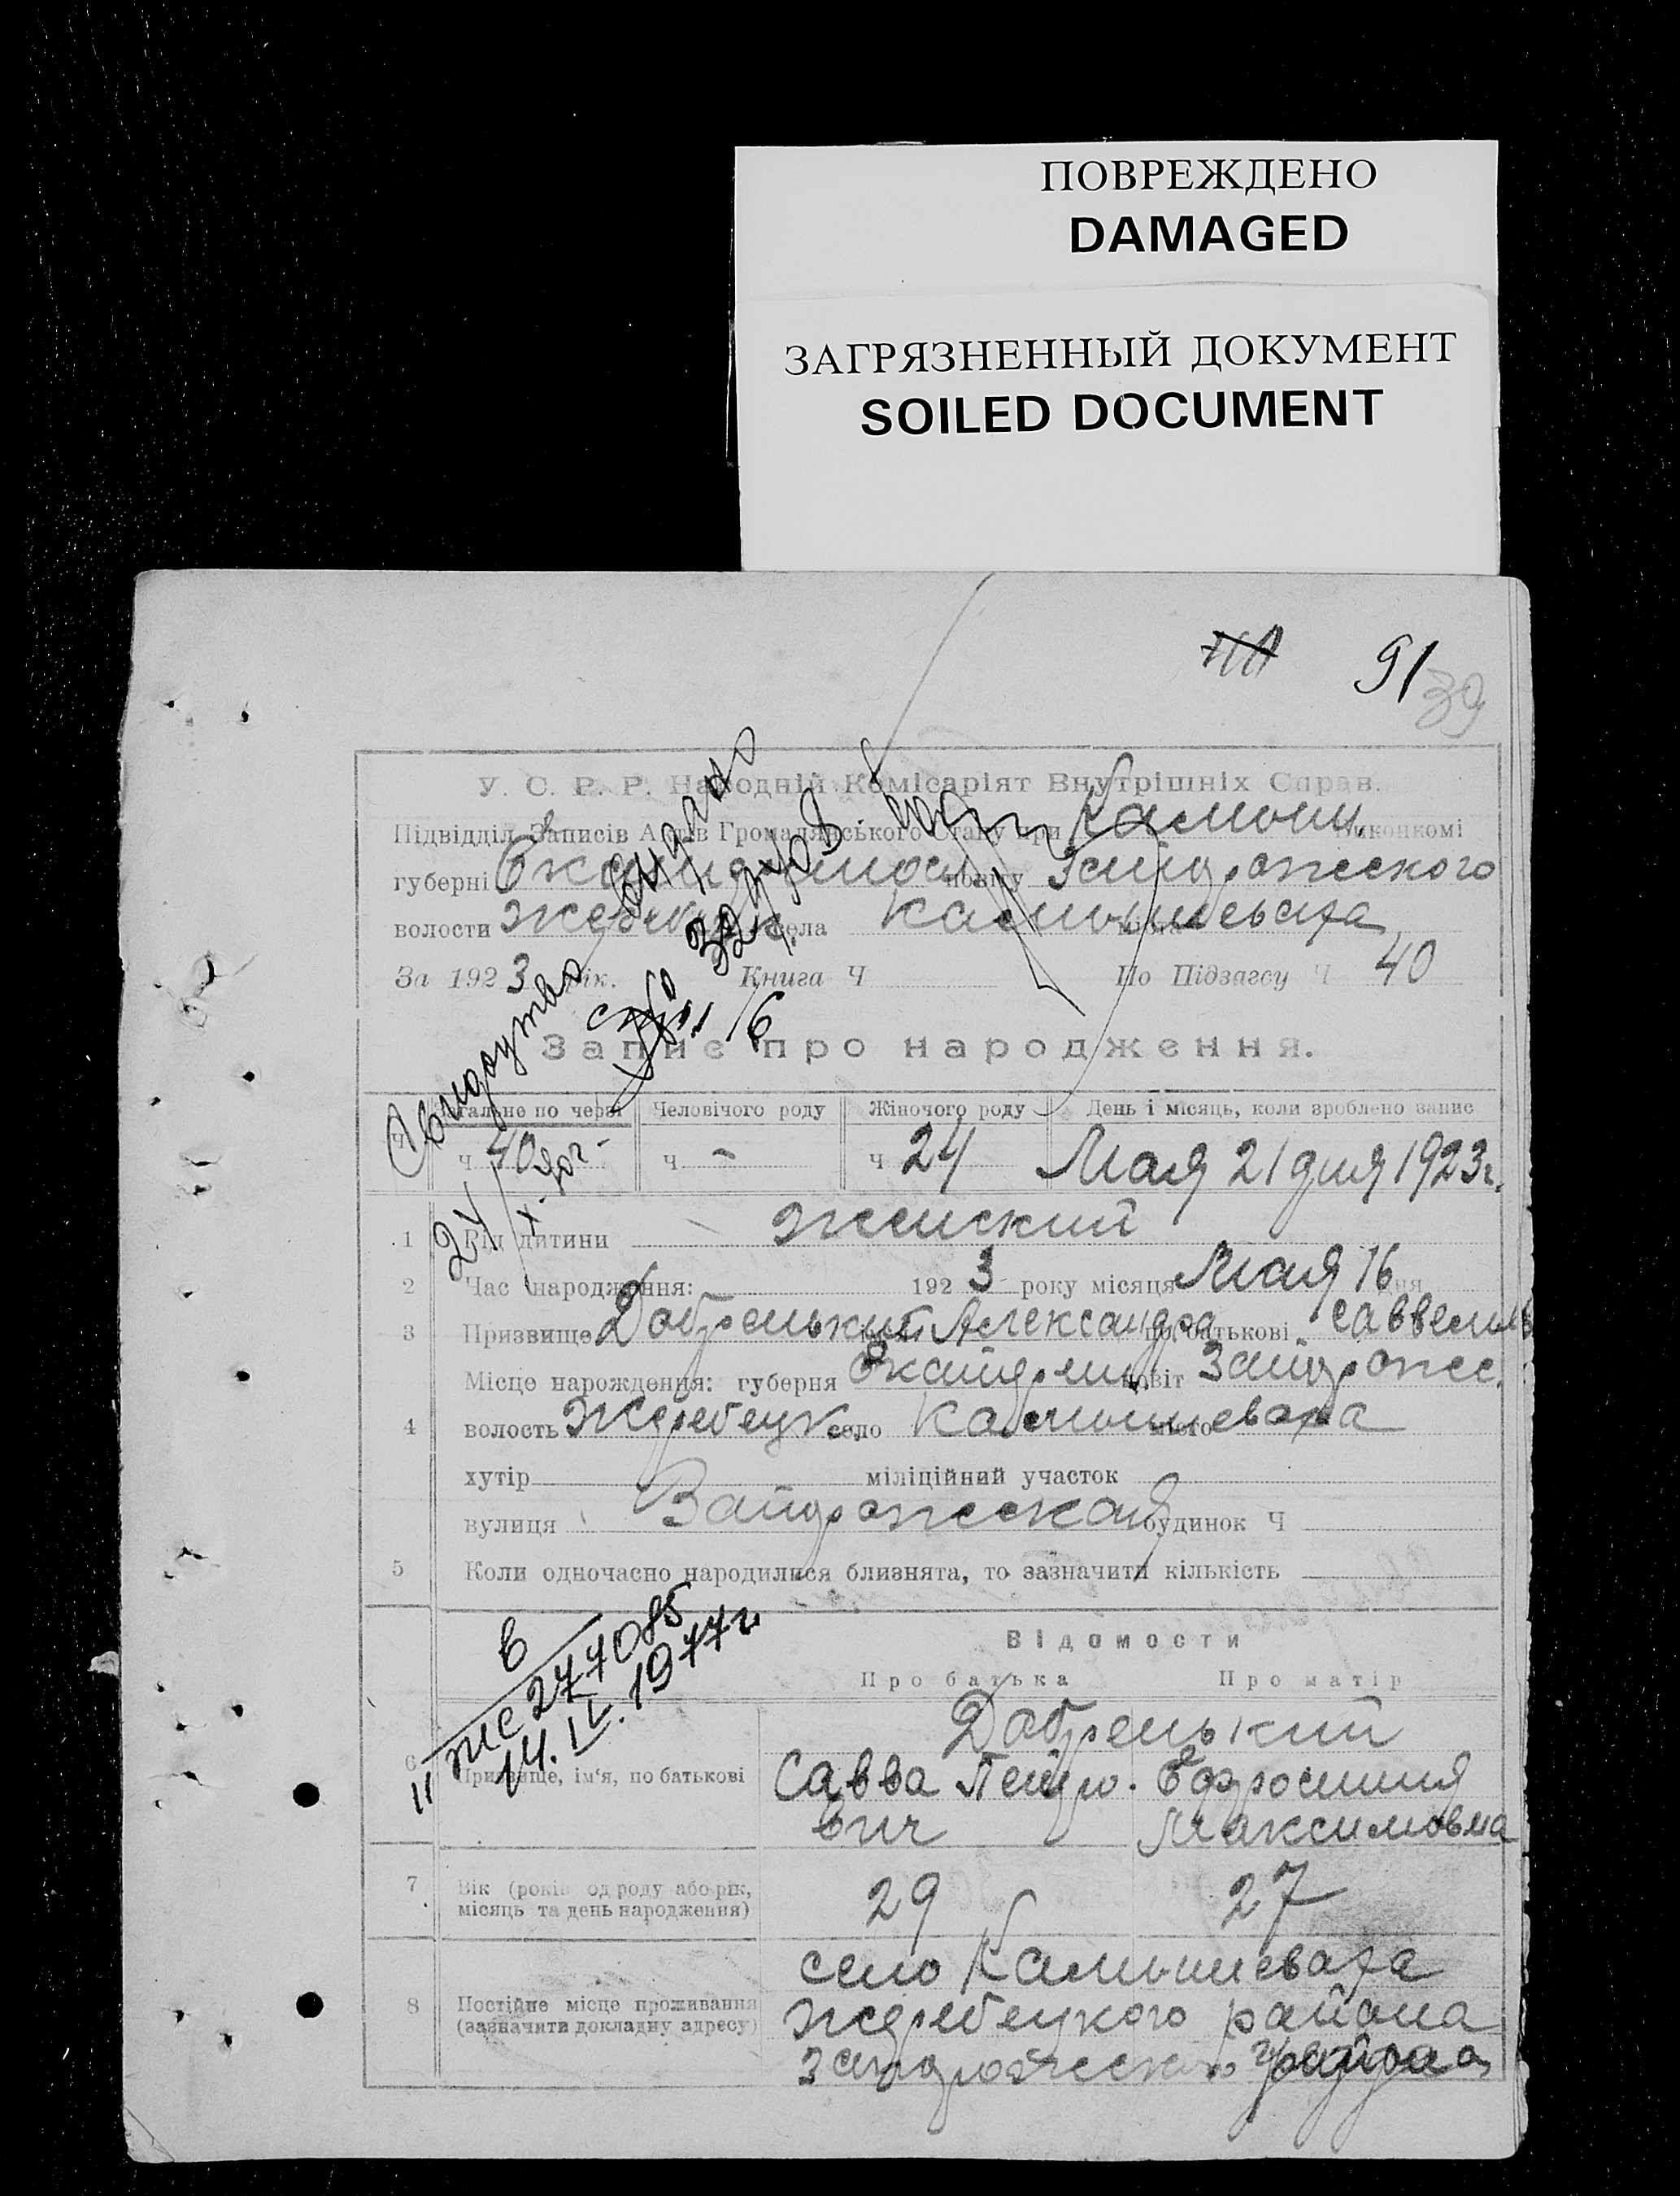 ПОВРЕЖДЕНО
DAMAGED
ЗАГРЯЗНЕННЫЙ ДОКУМЕНТ
SOILED DOCUMENT
91
39
У. С. Р. Р. Народній Комісаріят Внутрішніх Справ.
Підвідділ Записів Актів Громадянського Стану при Камыш виконкомі
губерні повіту Запорожского
волости села Камышеваха
За 1923 рік. Книга Ч По Підзагсу Ч 40
Запис про народження.
Загальне по черзі Человічого роду Жіночого роду День і місяць, коли зроблено запис
Ч 40 Ч — Ч 24 Мая 21 дня 1923 г.
Свидоцтво видано
1 Рід дитини женский
2 Час народження: 1923 року місяця Мая 16 дня
3 Призвище Добренький Александра по батькові Саввеывн
Місце народження: губерня Екатерин. повіт Запорожс.
4 волость Жеребецк. село Камышеваха
хутір міліційний участок
вулиця Запорожская будинок Ч
5 Коли одночасно народилися близнята, то зазначити кількість
Відомости
Про батька Про матір
II ЖС 277085
14.IV.1977г.
Добренький
6 Призвище, ім'я, по батькові Савва Петро- Ефросиния
вич Максимовна
7 Вік (років од роду або рік, 29 27
місяць та день народження)
село Камышеваха
8 Постійне місце проживання Жеребецкого района
(зазначити докладну адресу) Запорожского